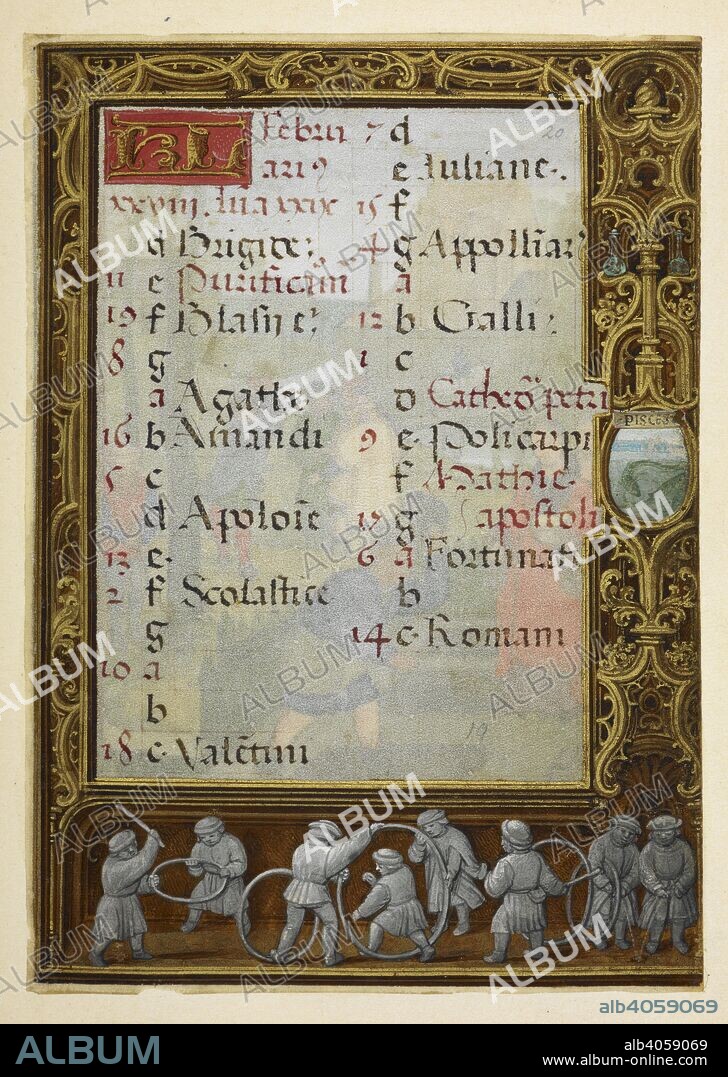 KL Februi
ari9
xxviii. lua xxix
d Brigide
11 e Purificam
19 f Blasij e
8 g
a Agathe
16 b Amandi
5 c
d Apolonie
13 e
2 f Scolastice
g
10 a
b
18 c Valetini
7 d
e Iuliane
15 f
4 g Appolliar
a
12 b Galli
1 c
d Cathed petri
9 e Policarpi
f Mathie
17 g apostoli
6 a Fortunat
b
14 c Romani
20
19
PISCES
ALBUM
alb4059069
ALBUM
alb4059069
www.album-online.com